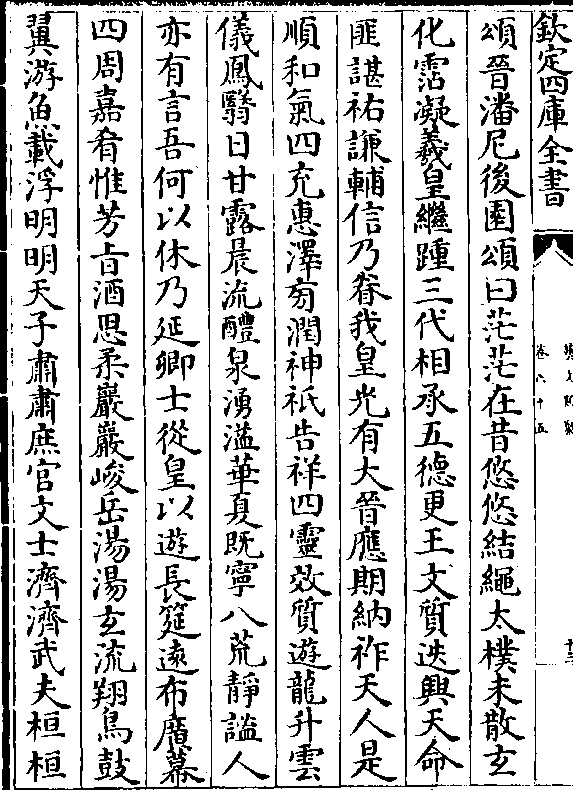 欽定四庫全書
頌晉潘尼後園頌曰茫茫在昔悠悠結繩太樸未散玄
化霑凝羲皇繼踵三代相承五德更王文質迭興天命
匪諶祐謙輔信乃眷我皇光有大晉應期納祚天人是
順和氣四充惠澤旁潤神祇告祥四靈效質遊龍升雲
儀鳳翳日甘露晨流醴泉湧溢華夏既寧八荒靜謐人
亦有言吾何以休乃延卿士從皇以遊長筵遠布廣幕
四周嘉肴惟芳旨酒思柔巖巖峻岳湯湯玄流翔鳥鼓
翼游魚載浮明明天子肅肅庶官文士濟濟武夫桓桓
卷六十五